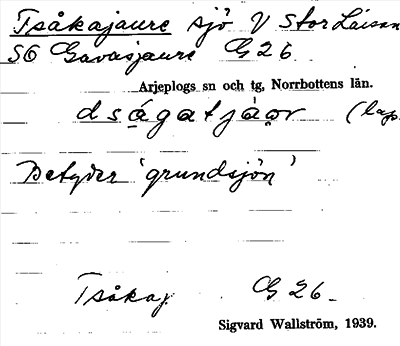 Tsåkajaure sjö V Stor Laisan
SO Gavasjaure G 26
Arjeplogs sn och tg, Norrbottens län.
dságatjàor (lap.
Betyder 'grundsjön'
Tsåkaj G 26
Sigvard Wallström, 1939.